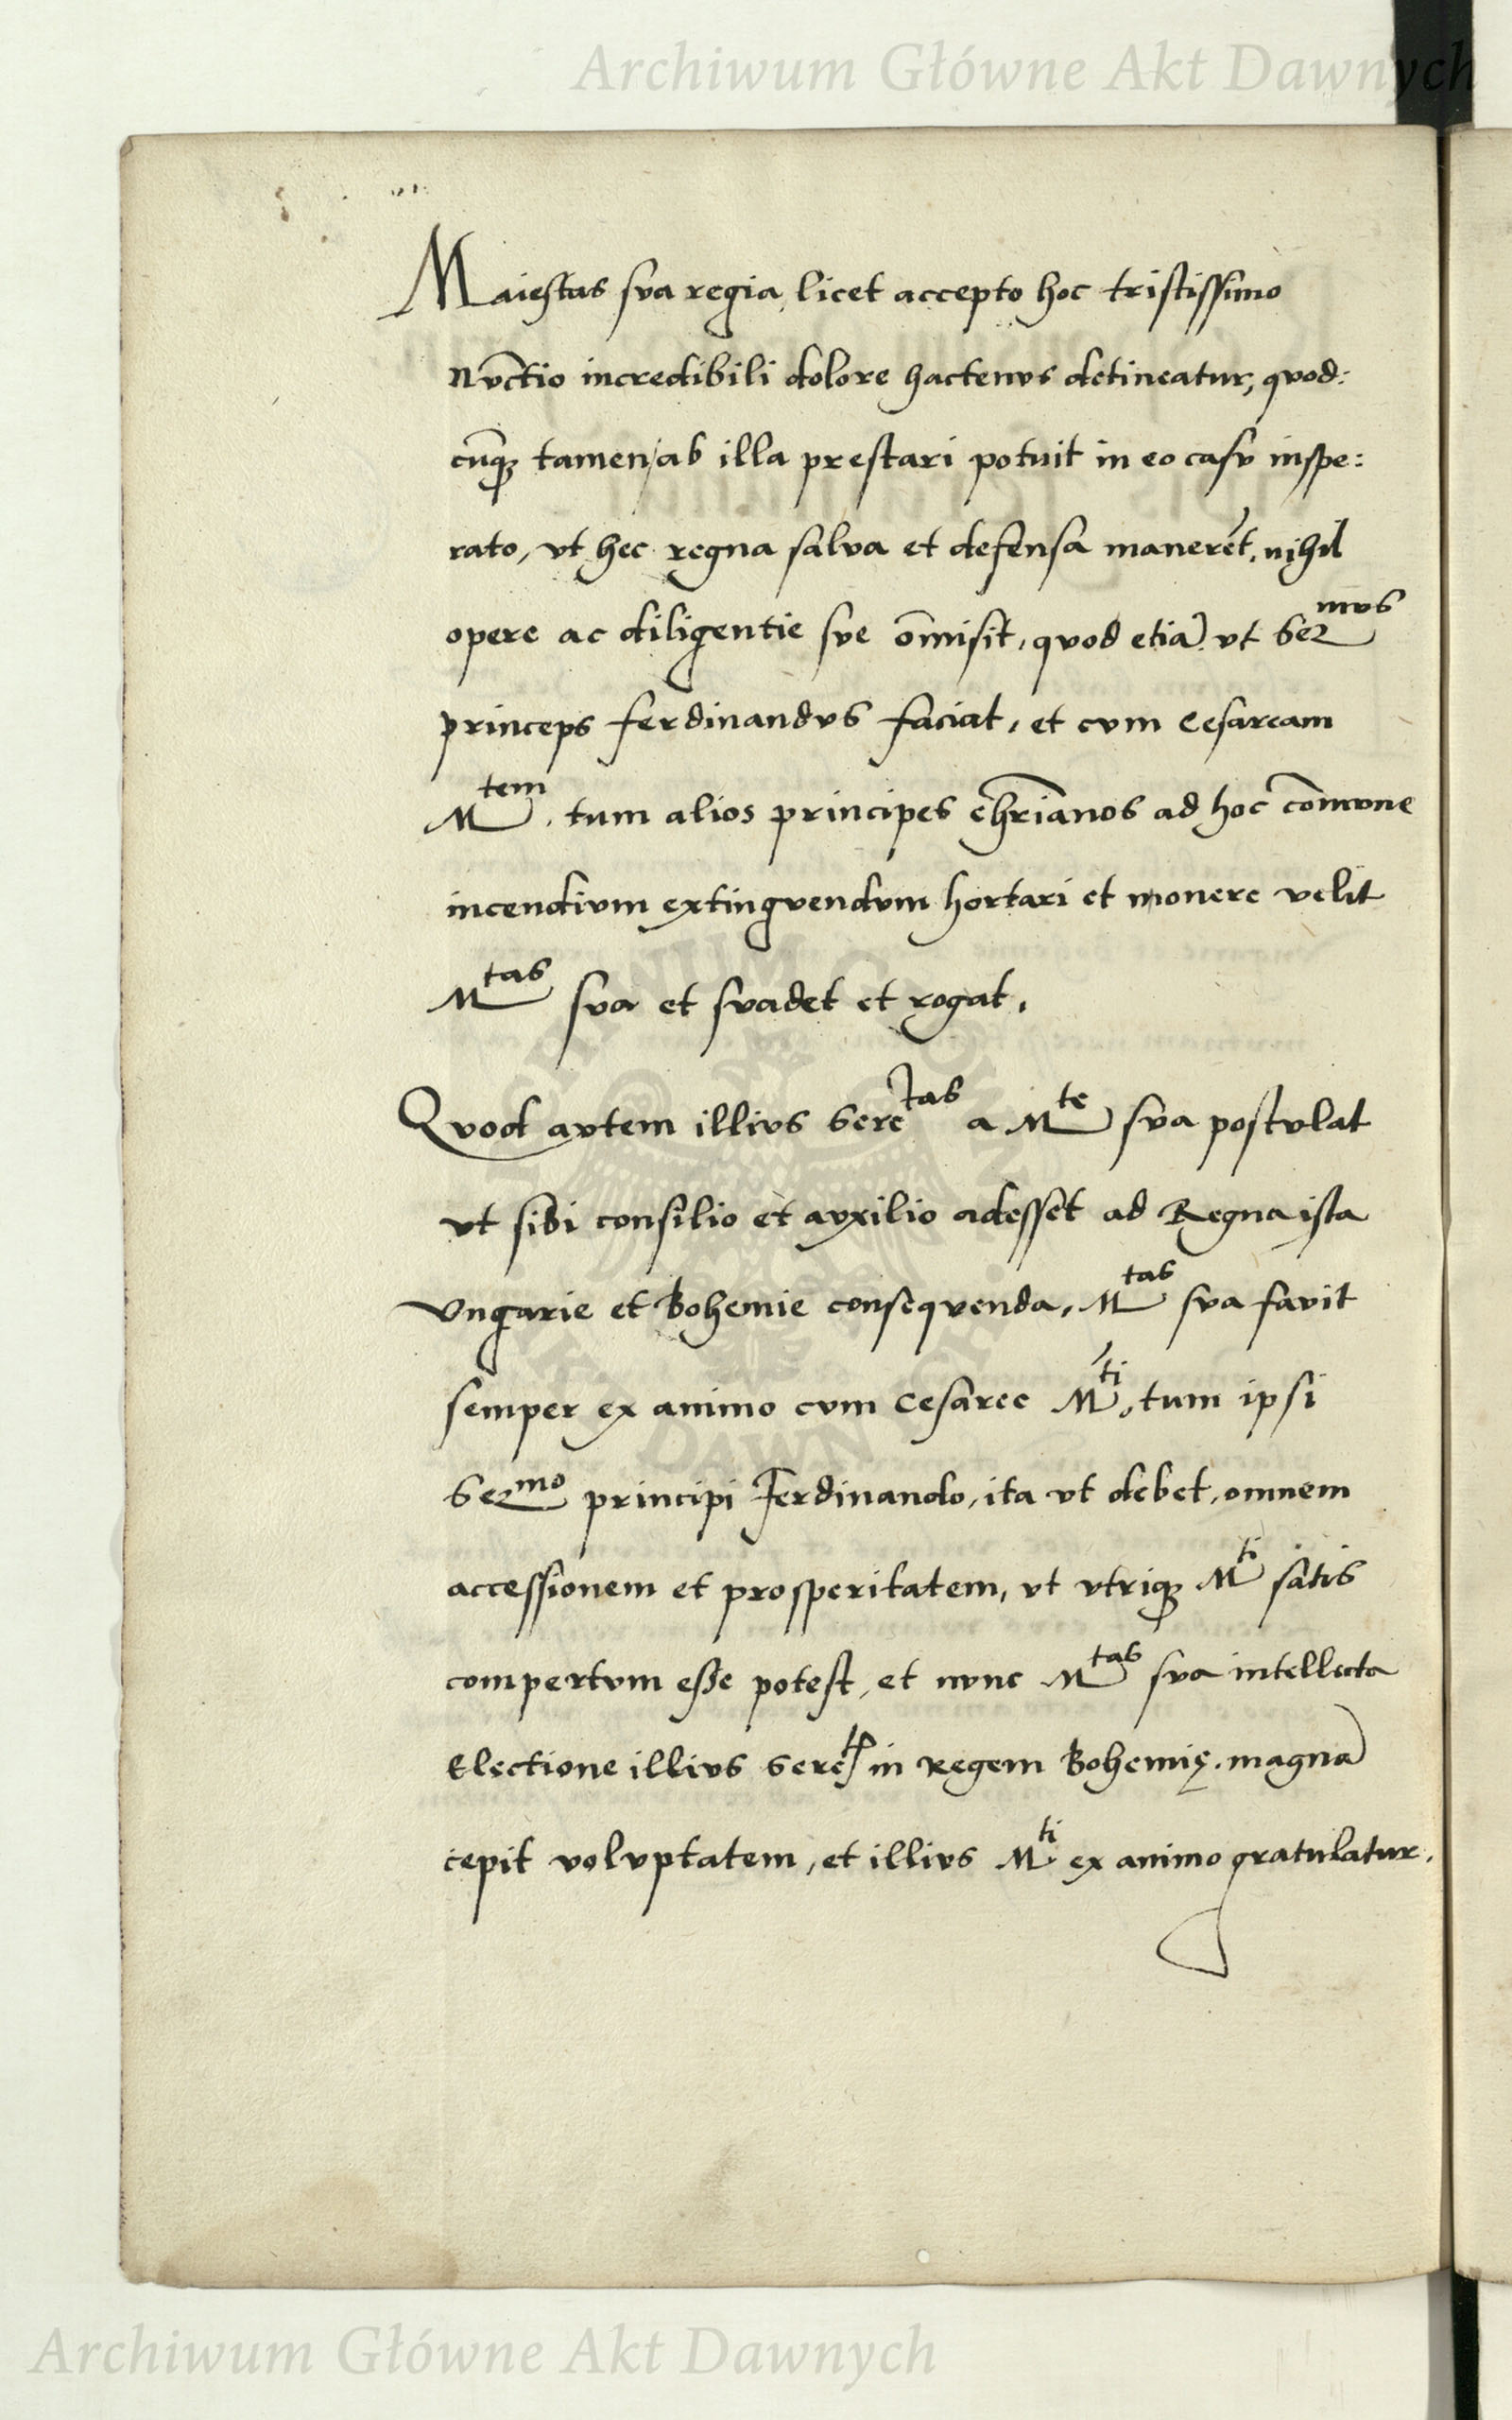 Archiwum Główne Akt Dawnych
Maiestas sva regia, licet accepto hoc tristissimo
nv̄ctio incredibili dolore hactenvs detineatur, qvod:
cūq3 tamen, ab illa prestari potuit in eo casv inspe:
rato, vt hec regna salva et defensa manerēt, nihil
opere ac diligentie sve om̄isit, qvod etiā vt Ser^mvs
princeps ferdinandvs faciat, et cvm Cesaream
M^tem, tum alios principes chr̄ianos ad hoc com̄vne
incendivm extingvendvm hortari et monere velit
M^tas sva et svadet et rogat.
Qvod avtem illivs Sere^tas a M^te sva postvlat
vt sibi consilio et avxilio adesset ad Regna ista
Vngarie et Bohemie conseqvenda, M^tas sva favit
semper ex animo cvm Cesaree M^ti, tum ipsi
Ser^mo principi Ferdinando, ita vt debet, omnem
accessionem et prosperitatem, vt vtriq3 M^ti satis
compertvm esse potest, et nvnc M^tas sva intellecta
Electione illivs Sere^tis in Regem Bohemię. magnā
cepit volvptatem, et illivs M^ti ex animo gratulatur.
Archiwum Główne Akt Dawnych